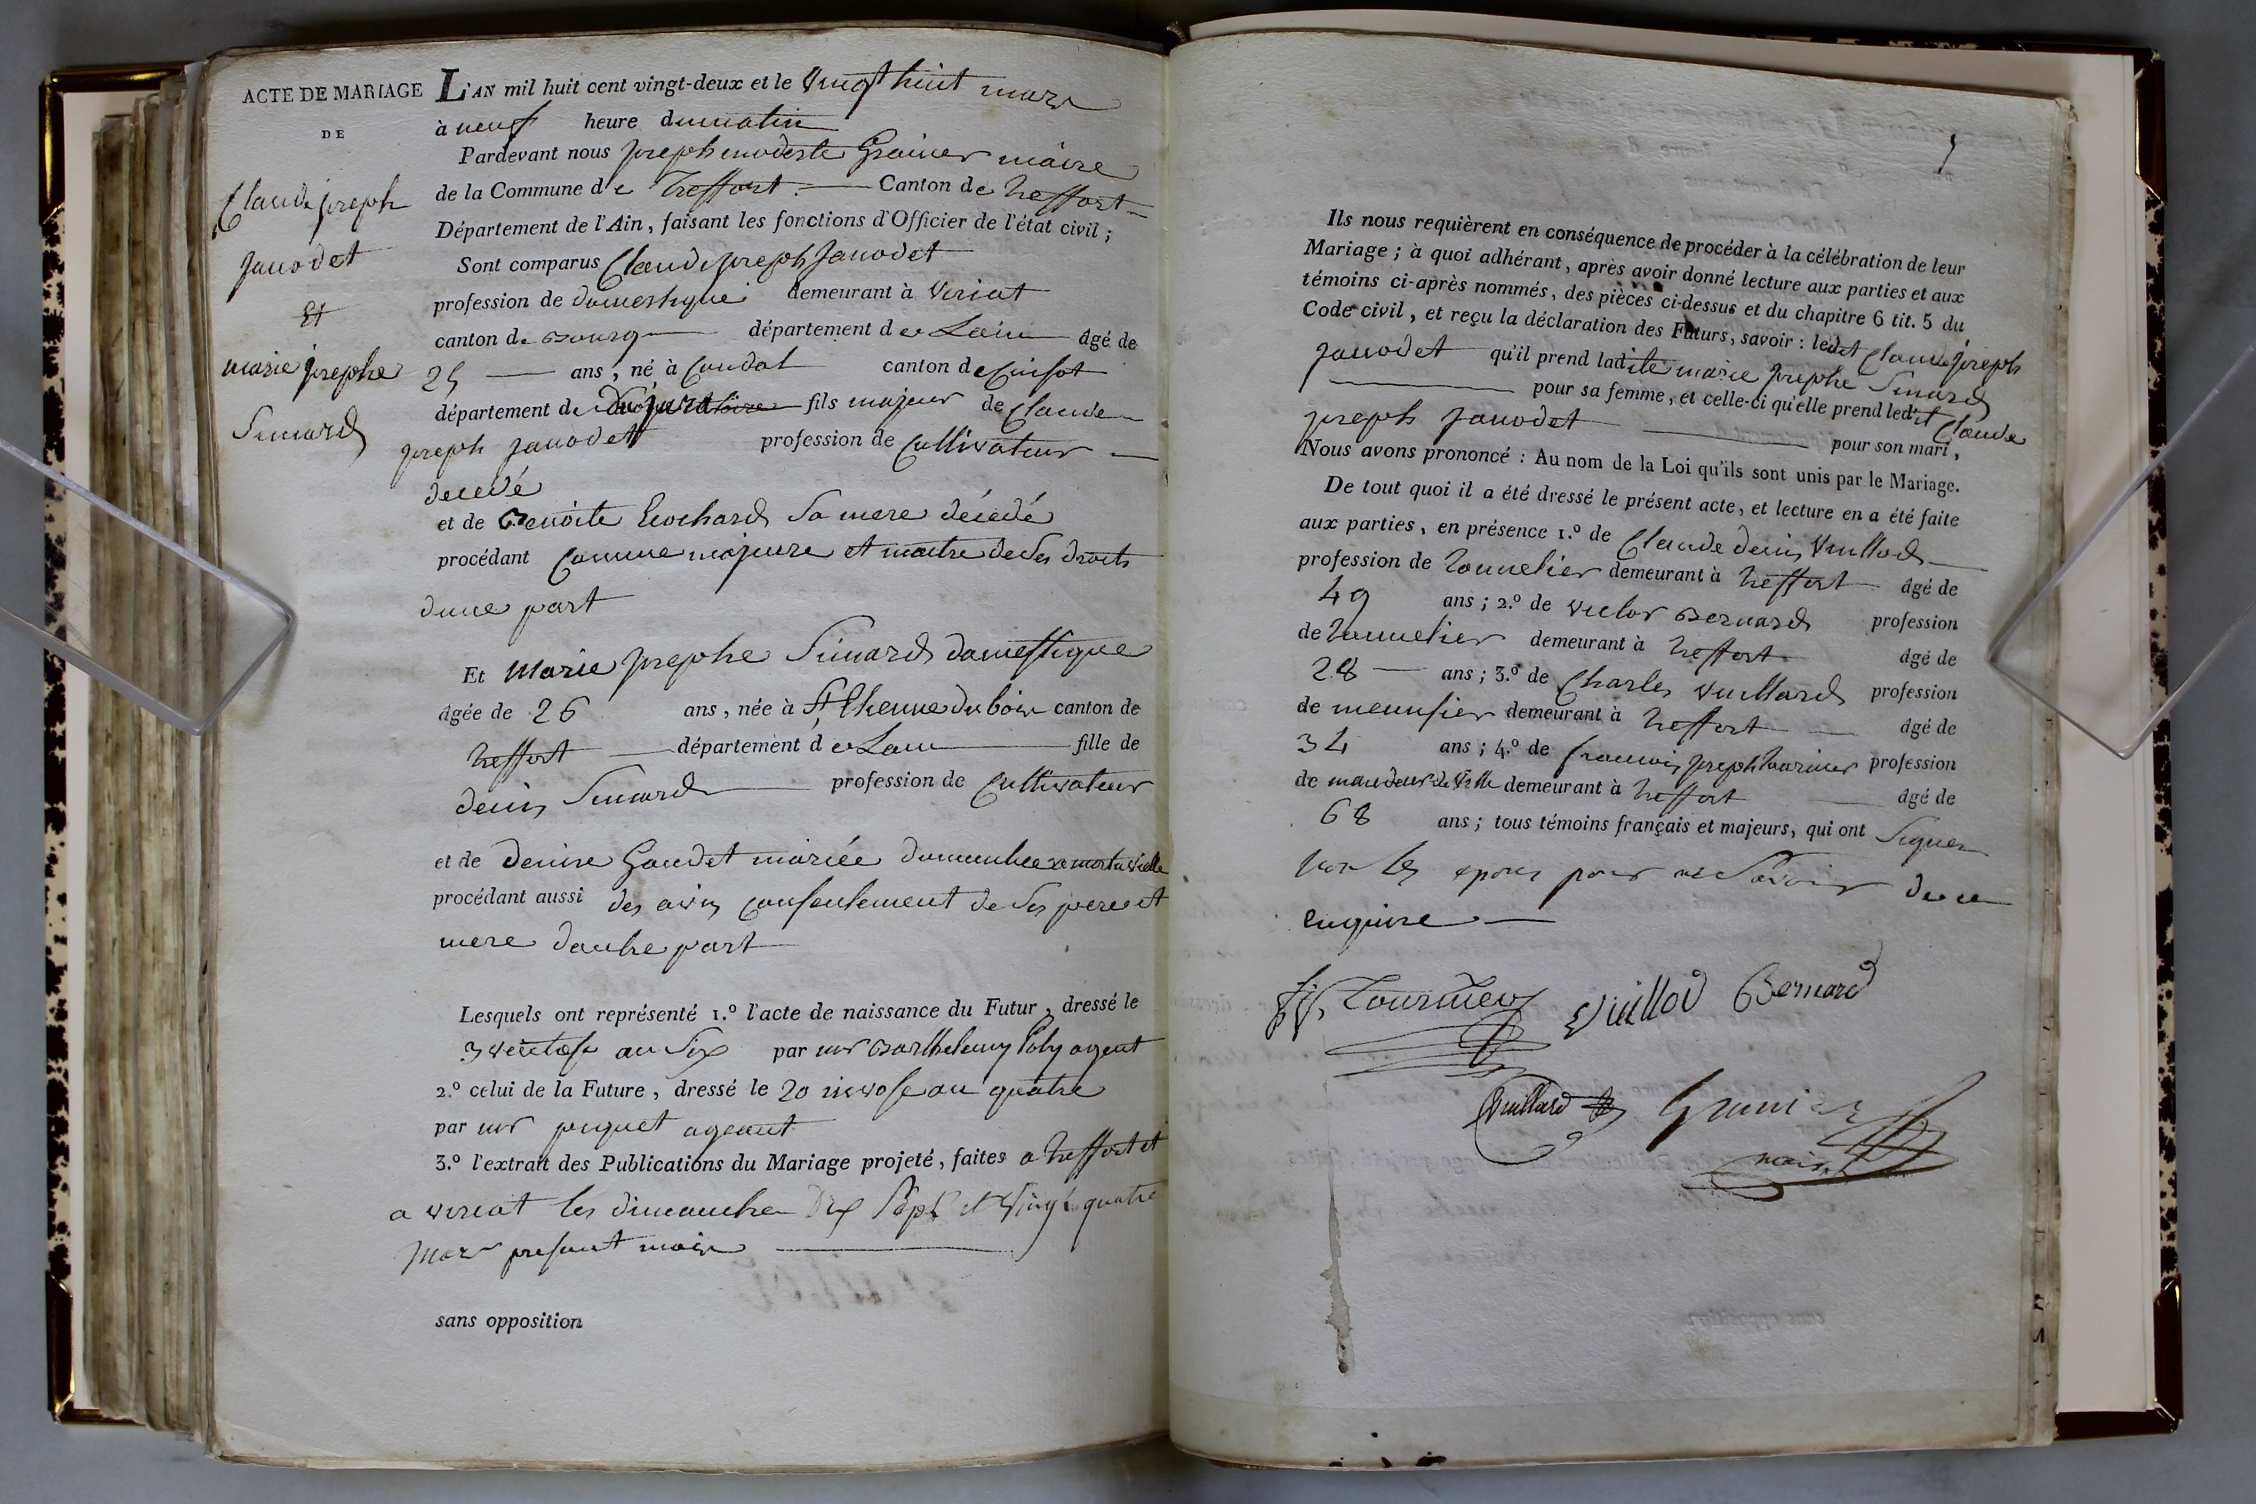 ACTE DE MARIAGE
DE
Claude joseph
Janodet
Et
marie josephe
Simard
L'AN mil huit cent vingt-deux et le vingt huit mars
à neuf heure du matin
Pardevant nous joseph modeste Grainer maire
de la Commune de Treffort Canton de treffort
Département de l'Ain, faisant les fonctions d'Officier de l'état civil;
Sont comparus Claude joseph Janodet
profession de domestique demeurant à viriat
canton de Bourg département de Lain âgé de
25 ans, né à Condal canton de Cuisot
département de du jura fils majeur de Claude
joseph janodet profession de Cultivateur
decedé
et de Benoite Ecochard sa mere décédé
procédant comme majeure et maitre de ses droits
dune part
Et Marie josephe Simard domestique
âgée de 26 ans, née à St Etienne du bois canton de
treffort département de Lain fille de
denis Simard profession de Cultivateur
et de denise Gaudet mariée
procédant aussi des avis consentement de ses pere et
mere dautre part
Lesquels ont représenté 1.º l'acte de naissance du Futur, dressé le
3 ventose an six par mr Barthelemy Poly agent
2.º celui de la Future, dressé le 20 nivose an quatre
par mr piquet agent
3.º l'extrait des Publications du Mariage projeté, faites a treffort et
a viriat les dimanches Dix Sept et Vingt quatre
Mars present mois
sans opposition
Ils nous requièrent en conséquence de procéder à la célébration de leur
Mariage; à quoi adhérant, après avoir donné lecture aux parties et aux
témoins ci-après nommés, des pièces ci-dessus et du chapitre 6 tit. 5 du
Code civil, et reçu la déclaration des Futurs, savoir: ledit Claude joseph
janodet qu'il prend ladite marie josephe Simard
pour sa femme, et celle-ci qu'elle prend ledit Claude
joseph janodet pour son mari,
Nous avons prononcé: Au nom de la Loi qu'ils sont unis par le Mariage.
De tout quoi il a été dressé le présent acte, et lecture en a été faite
aux parties, en présence 1.º de Claude denis Vuillod
profession de tonnelier demeurant à treffort âgé de
49 ans; 2.º de victor Bernard profession
de tonnelier demeurant à treffort âgé de
28 ans; 3.º de Charles vuillard profession
de menusier demeurant à treffort âgé de
34 ans; 4.º de francois joseph tournier profession
de mandeur de ville demeurant à treffort âgé de
68 ans; tous témoins français et majeurs, qui ont signer
non les epoux pour ne savoir de ce
enquire
Tournier Vuillod Bernard
Vuillard
maire